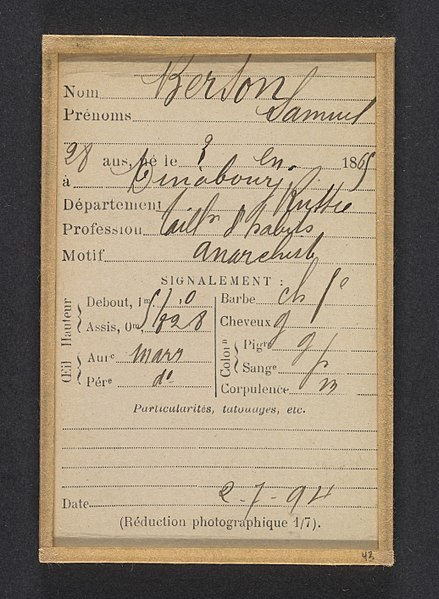 Nom Berson
Prénoms Samuel
28 ans, né le ? en 1865
à Dinabourg
Département Russie
Profession taill^r d'habits
Motif anarchiste
SIGNALEMENT :
Hauteur
Debout, 1^m
Assis, 0^m 828
Œil
Aur^e marr
Pér^e d°
Barbe ch f^é
Cheveux
Color^n
Pig^re g
Sang^e p
Corpulence m
Particularités, tatouages, etc.
Date 2-7-94
(Réduction photographique 1/7).
43